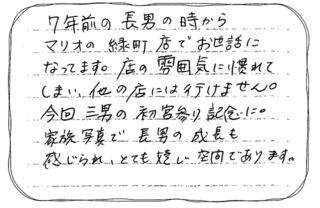 7年前の長男の時から
マリオの緑町店でお世話に
なってます。店の雰囲気に慣れて
しまい、他の店には行けません。
今回三男の初宮参り記念に。
家族写真で長男の成長も
感じられ、とても嬉しい空間であります。